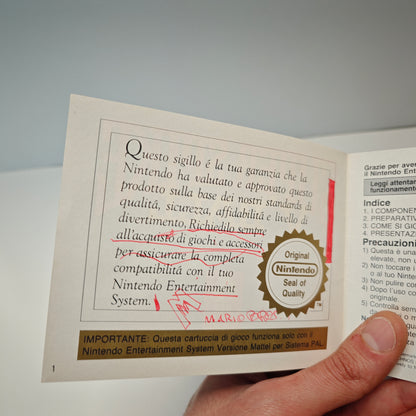 Questo sigillo é la tua garanzia che la
Nintendo ha valutato e approvato questo
prodotto sulla base dei nostri standards di
qualitá, sicurezza, affidabilitá e livello di
divertimento. Richiedilo sempre
all'acquisto di giochi e accessori
per assicurare la completa
compatibilitá con il tuo
Nintendo Entertainment
System.
Original
Nintendo
Seal of
Quality
TM
MARIO BROS
IMPORTANTE: Questa cartuccia di gioco funziona solo con il
Nintendo Entertainment System Versione Mattel per Sistema PAL.
1
Grazie per aver
il Nintendo Enter
Leggi attentam
funzionamento
Indice
1. I COMPONEN
2. PREPARATIV
3. COME SI GIO
4. PRESENTAZ
Precauzioni
1) Questa è una
elevate, non u
2) Non toccare i
al
3) Non pulire con
4) Dopo l'uso co
originale.
5) Controlla sem